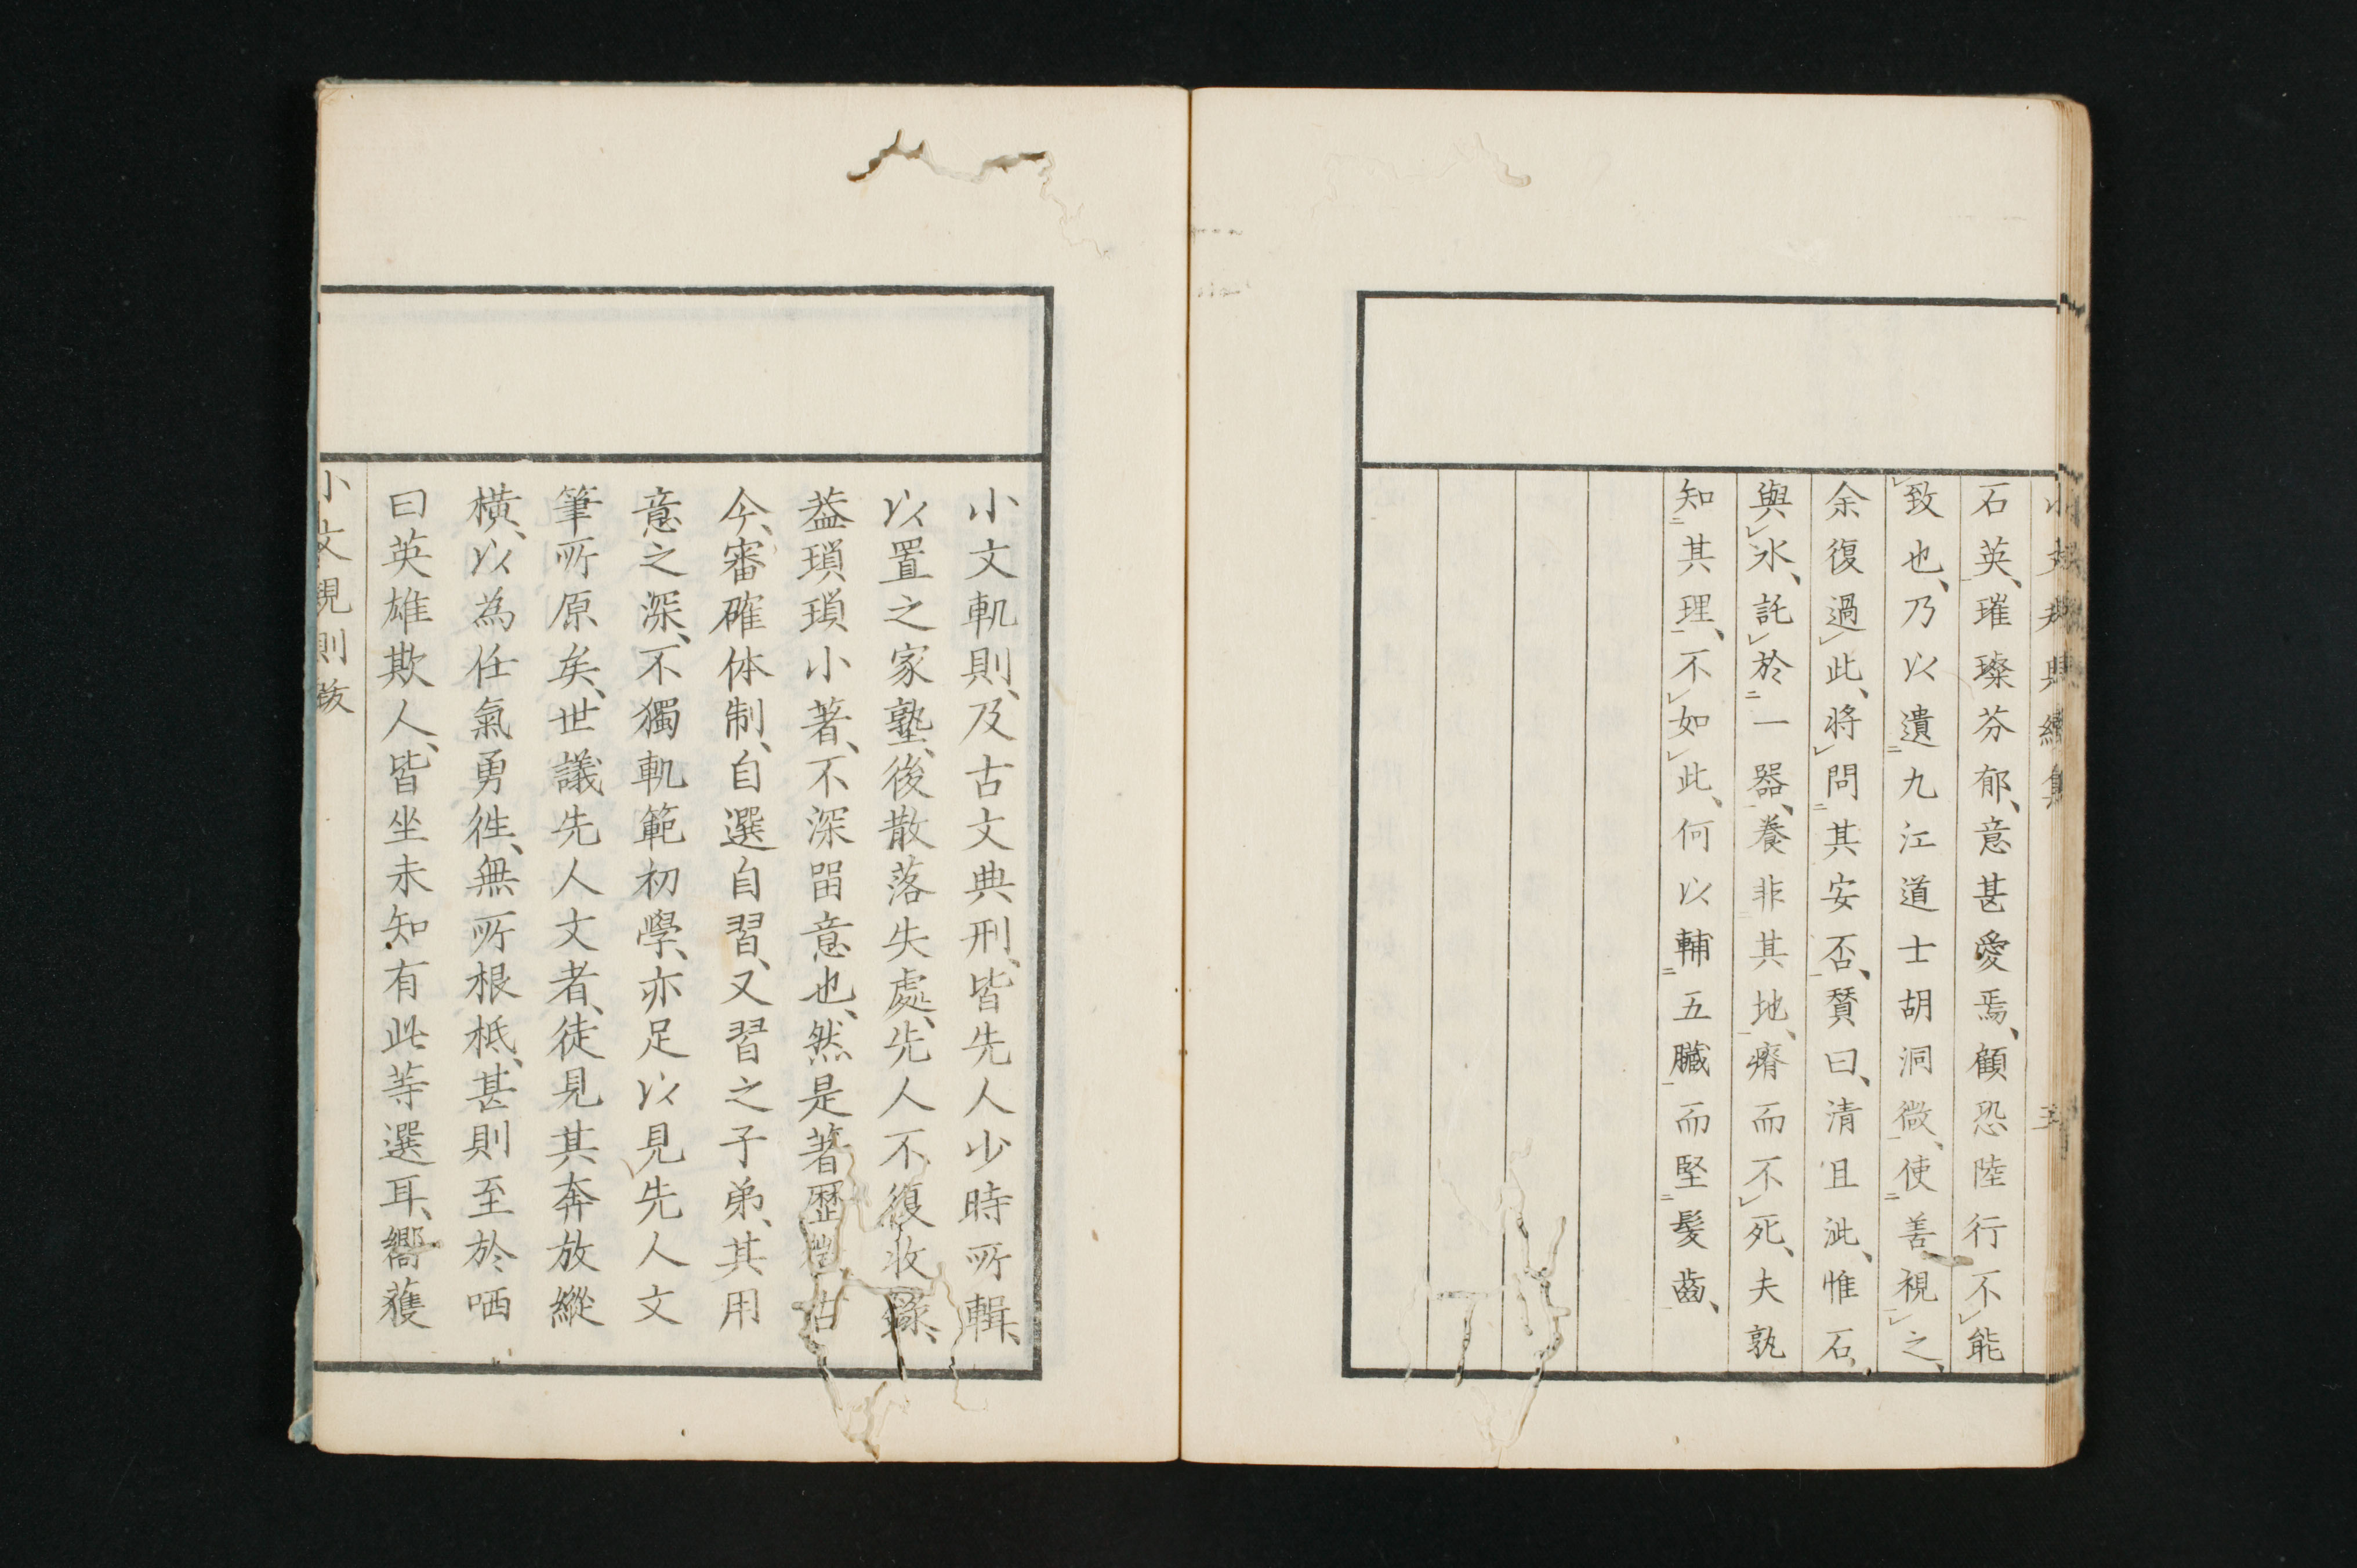 石英、璀璨芬郁、意甚愛焉、顧恐陸行不㆑能
致也、乃以遺㆓九江道士胡洞微㆒、使㆓善視㆒㆑之、
余復過㆑此、将㆑問㆓其安否㆒、贊曰、清且泚、惟石、
與㆑水、託㆑於㆓一器㆒、養非㆓其地㆒、瘠而不㆑死、夫孰
知㆓其理㆒、不㆑如㆑此、何以輔㆓五臓㆒而堅㆓髪齒㆒、
小文軌則、及古文典刑、皆先人少時所輯、
以置之家塾、後散落失處、先人不復收錄、
蓋瑣瑣小著、不深留意也、然是著歷
今、審確体制、自選自習、又習之子弟、其用
意之深、不獨軌範初學、亦足以見先人文
筆所原矣、世議先人文者、徒見其奔放縱
橫、以為任氣勇往、無所根柢、甚則至於哂
曰英雄欺人、皆坐未知有此等選耳、嚮獲
小文規則跋